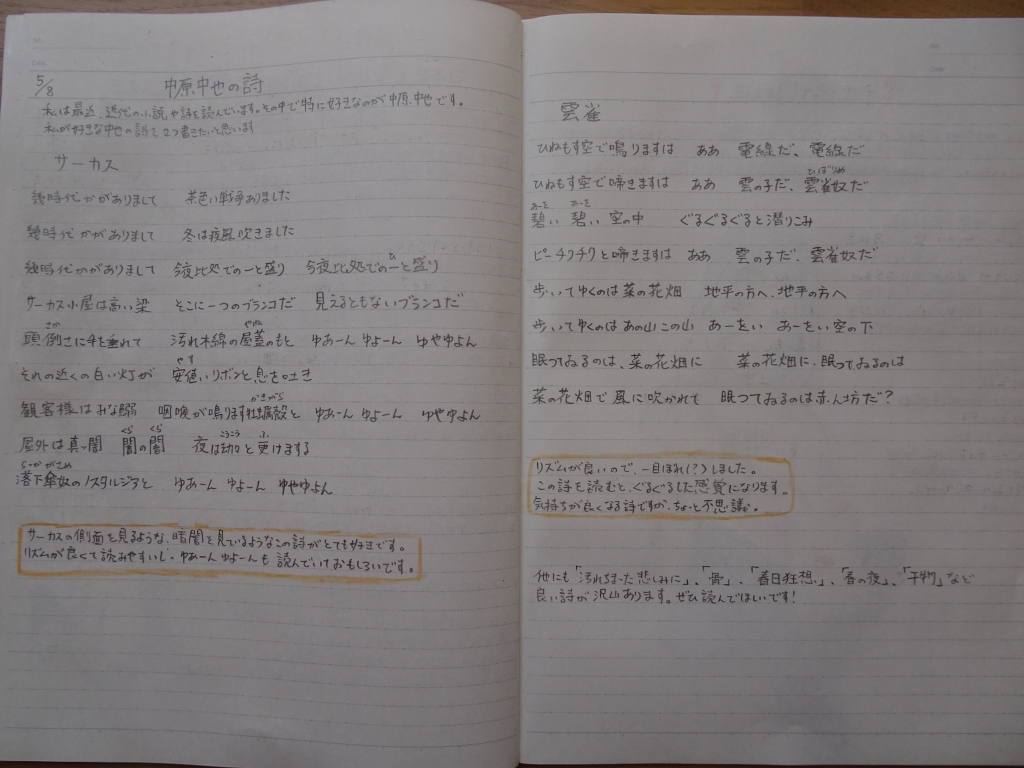 5/8 中原中也の詩
私は最近、近代の小説や詩を読んでいます。その中で特に好きなのが中原中也です。
私が好きな中也の詩を2つ書きたいと思います
サーカス
幾時代かがありまして 茶色い戦争ありました
幾時代かがありまして 冬は疾風吹きました
幾時代かがありまして 今夜此処での一と盛り 今夜此処での一と盛り
サーカス小屋は高い梁 そこに一つのブランコだ 見えるともないブランコだ
頭倒さに手を垂れて 汚れ木綿の屋蓋のもと ゆあーん ゆよーん ゆやゆよん
それの近くの白い灯が 安値いリボンと息を吐き
観客様はみな鰯 咽喉が鳴ります牡蠣殻と ゆあーん ゆよーん ゆやゆよん
屋外は真ッ闇 闇の闇 夜は劫々と更けまする
落下傘奴のノスタルジアと ゆあーん ゆよーん ゆやゆよん
サーカスの側面を見るような、暗闇を見ているようなこの詩がとても好きです。
リズムが良くて読みやすいし、ゆあーんゆよーんも読んでいておもしろいです。
雲雀
ひねもす空で鳴りますは ああ 電線だ、電線だ
ひねもす空で啼きますは ああ 雲の子だ、雲雀奴だ
碧い 碧い 空の中 ぐるぐるぐると 潜りこみ
ピーチクチクと啼きますは ああ 雲の子だ、雲雀奴だ
歩いてゆくのは菜の花畑 地平の方へ、地平の方へ
歩いてゆくのはあの山この山 あーをい あーをい空の下
眠ってゐるのは、菜の花畑に 菜の花畑に、眠ってゐるのは
菜の花畑で風に吹かれて 眠つてゐるのは赤ん坊だ?
リズムが良いので、一目ぼれ(?)しました。
この詩を読むと、ぐるぐるした感覚になります。
気持ちが良くなる詩ですが、ちょっと不思議。
他にも「汚れちまった悲しみに」、「骨」、「春日狂想」、「春の夜」、「干物」など
良い詩が沢山あります。ぜひ読んでほしいです!